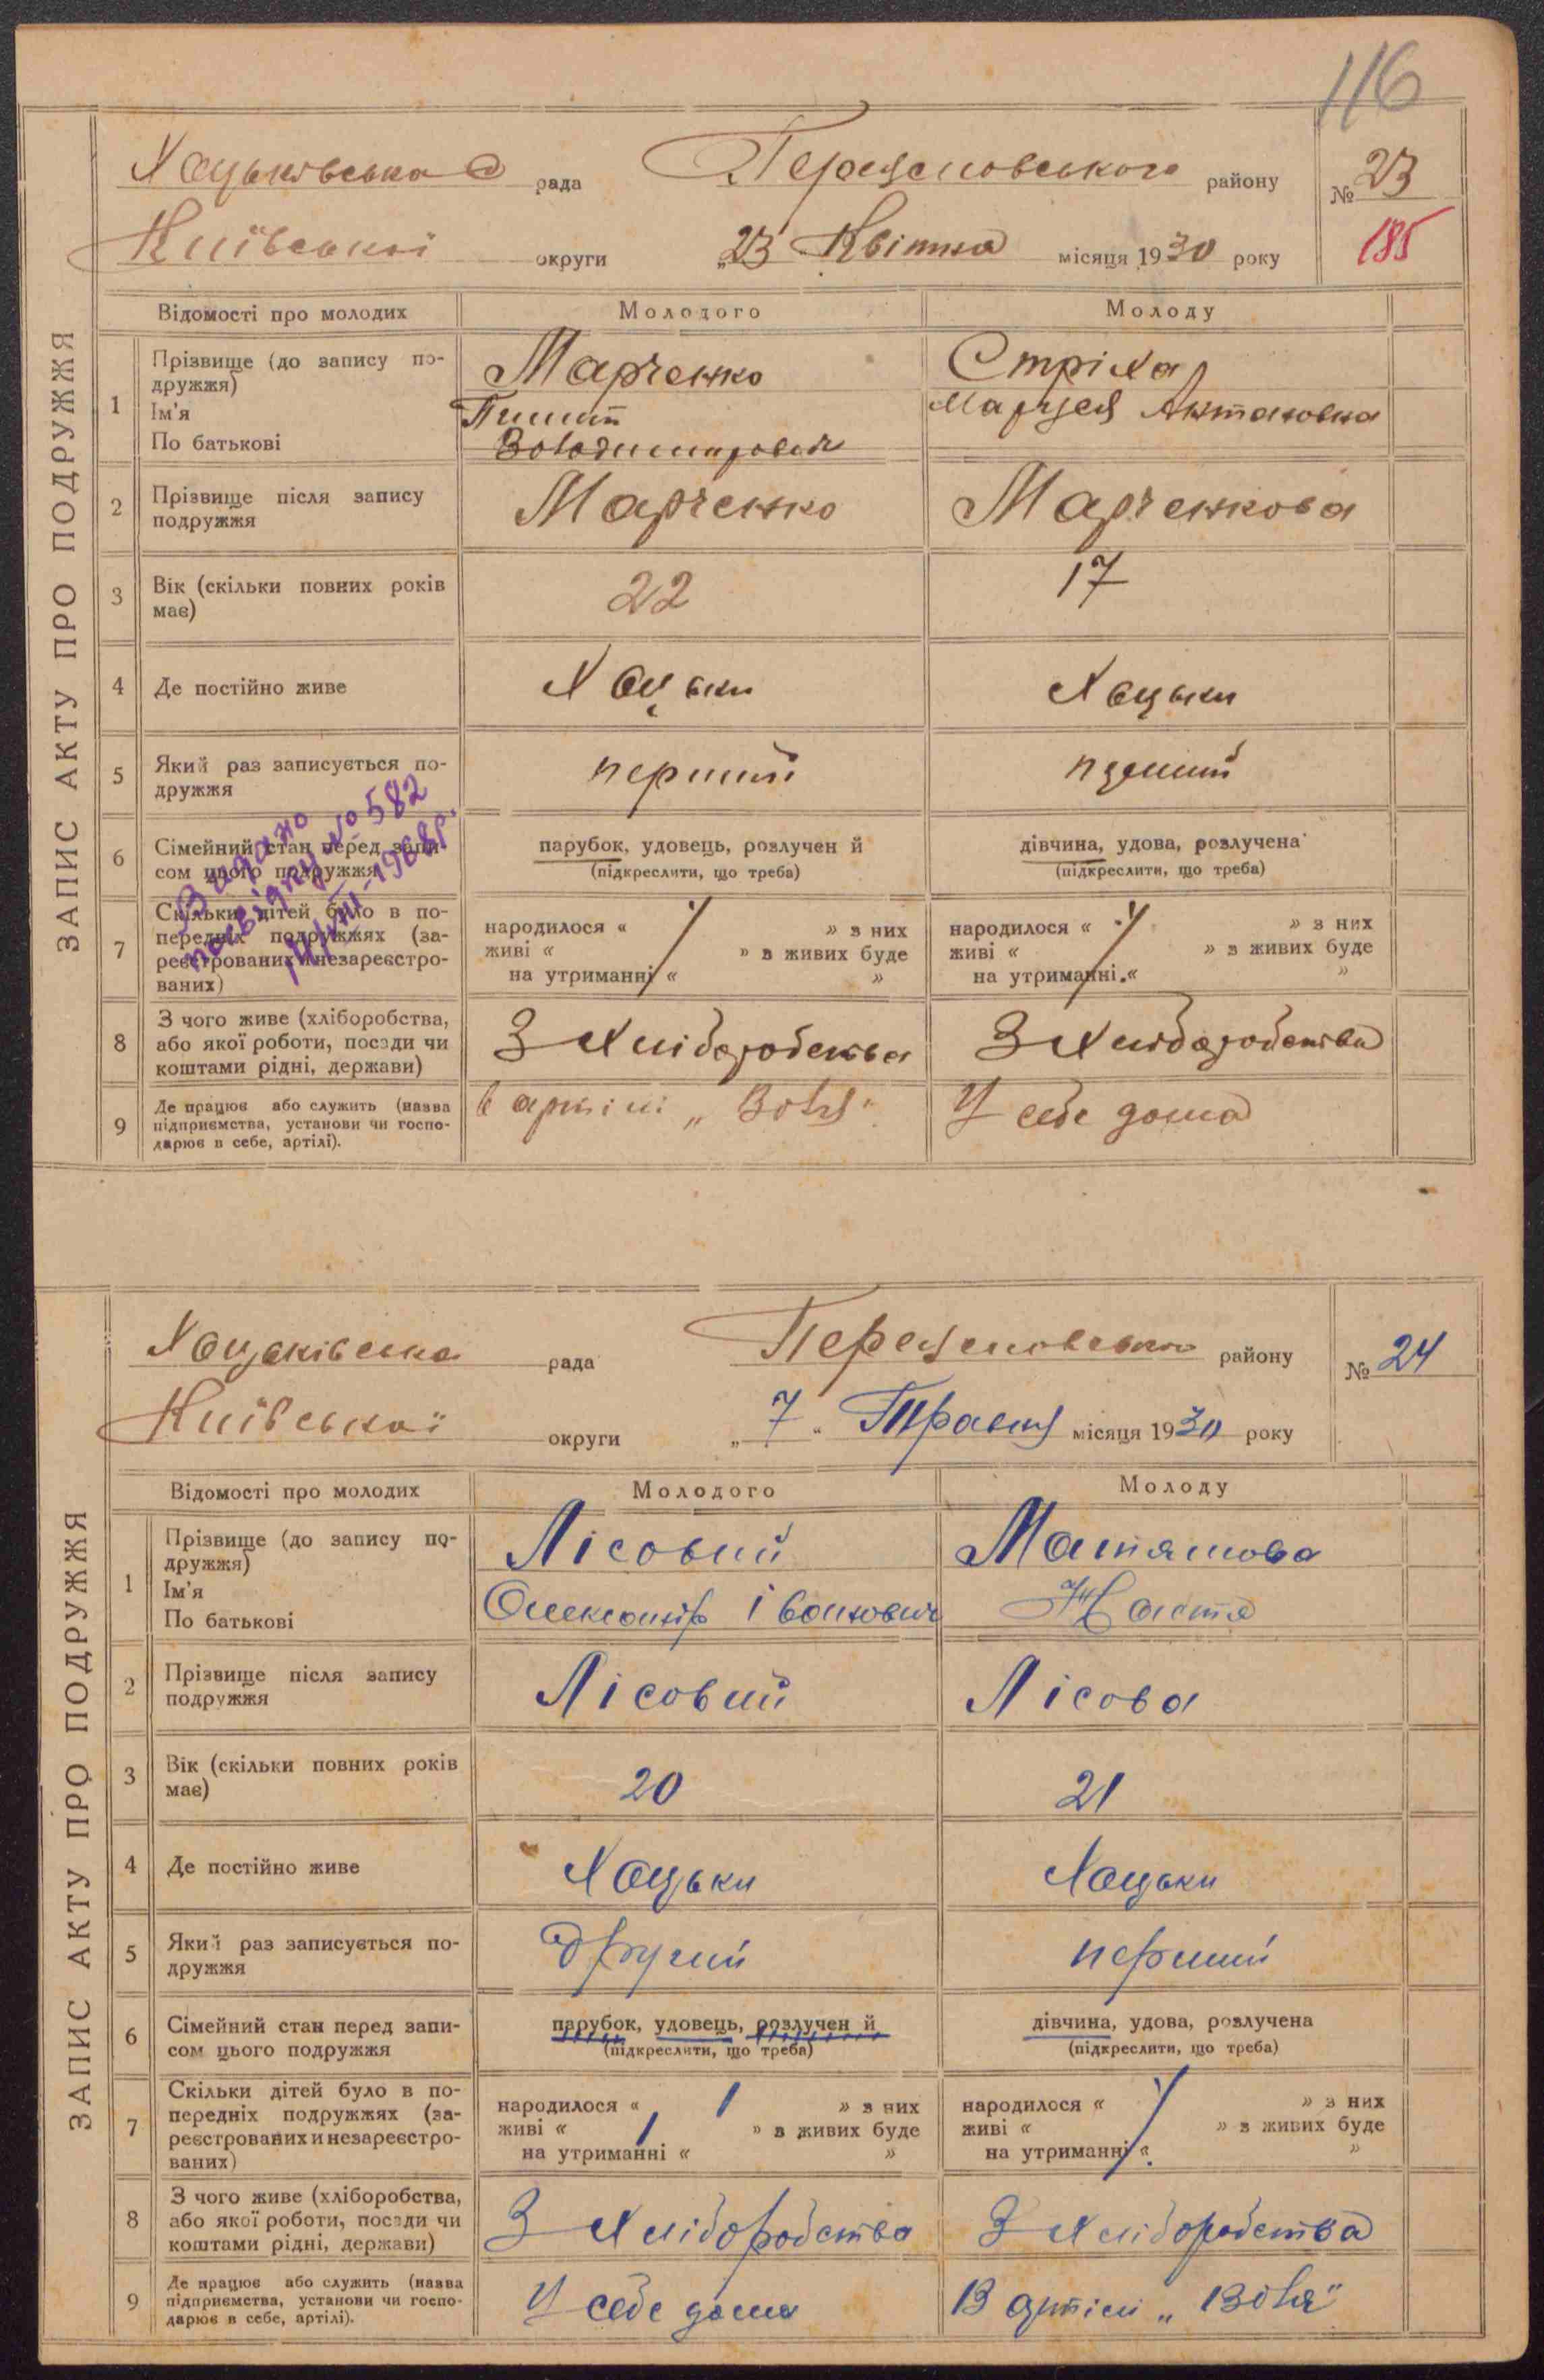 116
ЗАПИС АКТУ ПРО ПОДРУЖЖЯ
Хоцьківська рада району № 23
Київської округи „23 Квітня місяця 1930 року 185
Відомості про молодих Молодого Молоду
1 Прізвище (до запису по-
дружжя)
Ім'я
По батькові
Марченко
Володимирович
Стріха
Антоновна
2 Прізвище після запису
подружжя
Марченко Марченкова
3 Вік (скільки повних років
має)
22 17
4 Де постійно живе Хоцьки Хоцьки
5 Який раз записується по-
дружжя
перший перший
6 Сімейний стан перед запи-
сом цього подружжя
парубок, удовець, розлучен й
(підкреслити, що треба)
дівчина, удова, розлучена
(підкреслити, що треба)
7 Скільки дітей було в по-
передніх подружжях (за-
реєстрованих и незареєстро-
ваних)
народилося « / » з них
живі « » з живих буде
на утриманні « »
народилося « / » з них
живі « » з живих буде
на утриманні « »
Видано
№ 582
1968р.
8 З чого живе (хліборобства,
або якої роботи, посади чи
коштами рідні, держави)
З хліборобства З хліборобства
9 Де працює або служить (назва
підприємства, установи чи госпо-
дарює в себе, артілі).
в артілі „Воля" У себе дома
ЗАПИС АКТУ ПРО ПОДРУЖЖЯ
Хоцьківська рада району № 24
Київської округи „7" Травня місяця 1930 року
Відомості про молодих Молодого Молоду
1 Прізвище (до запису по-
дружжя)
Ім'я
По батькові
Лісовий
Олександр Іванович
Матяшова
Настя
2 Прізвище після запису
подружжя
Лісовий Лісова
3 Вік (скільки повних років
має)
20 21
4 Де постійно живе Хоцьки Хоцьки
5 Який раз записується по-
дружжя
другий перший
6 Сімейний стан перед запи-
сом цього подружжя
парубок, удовець, розлучен й
(підкреслити, що треба)
дівчина, удова, розлучена
(підкреслити, що треба)
7 Скільки дітей було в по-
передніх подружжях (за-
реєстрованих и незареєстро-
ваних)
народилося « 1 » з них
живі « 1 » з живих буде
на утриманні « »
народилося « / » з них
живі « » з живих буде
на утриманні « »
8 З чого живе (хліборобства,
або якої роботи, посади чи
коштами рідні, держави)
З хліборобства З хліборобства
9 Де працює або служить (назва
підприємства, установи чи госпо-
дарює в себе, артілі).
У себе дома В артілі „Воля"